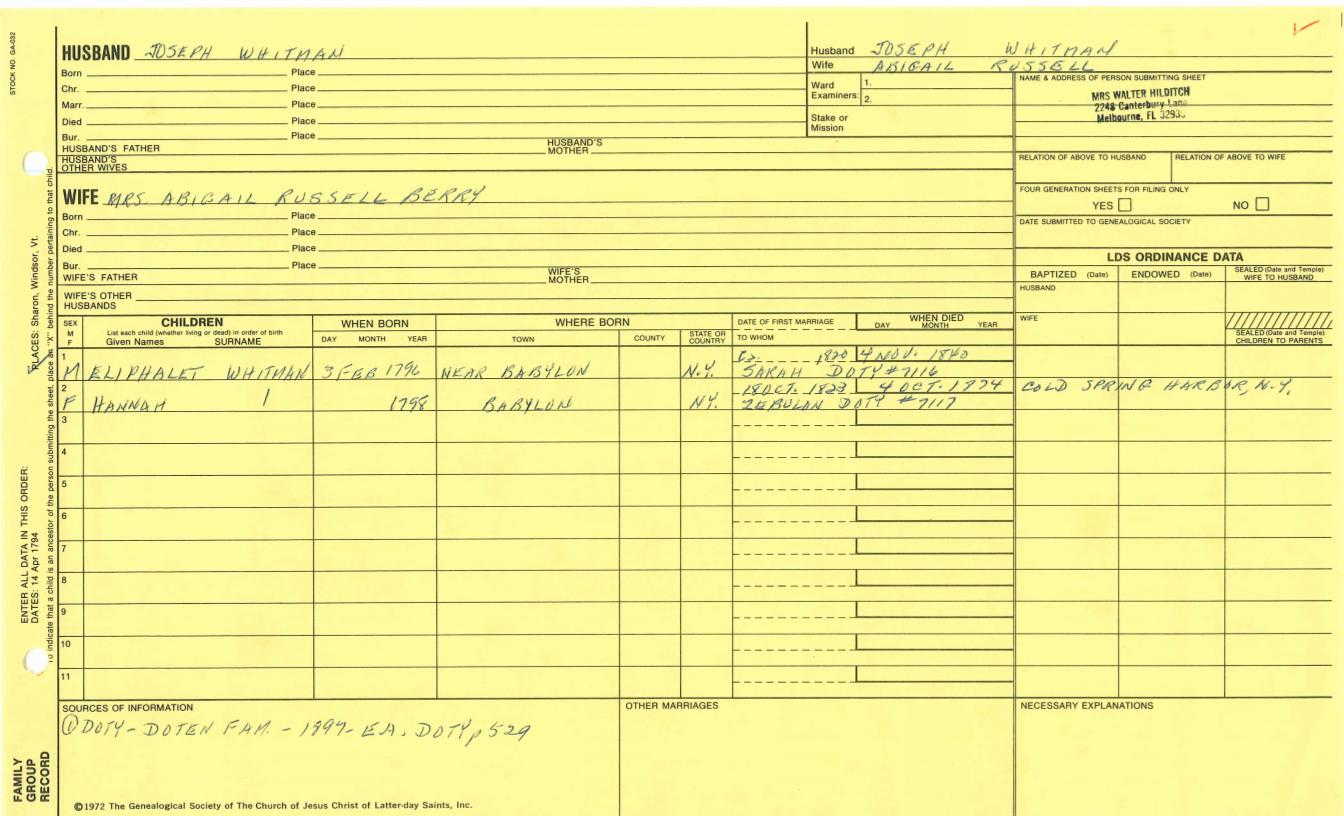 STOCK NO. GA-032
HUSBAND JOSEPH WHITMAN
Born Place
Chr. Place
Marr. Place
Died Place
Bur. Place
HUSBAND'S FATHER HUSBAND'S MOTHER
HUSBAND'S OTHER WIVES
Husband JOSEPH WHITMAN
Wife ABIGAIL RUSSELL
Ward Examiners: 1.
2.
Stake or Mission
NAME & ADDRESS OF PERSON SUBMITTING SHEET
MRS WALTER HILDITCH
2248 Canterbury Lane
Melbourne, FL
RELATION OF ABOVE TO HUSBAND RELATION OF ABOVE TO WIFE
FOUR GENERATION SHEETS FOR FILING ONLY
YES NO
DATE SUBMITTED TO GENEALOGICAL SOCIETY
WIFE MRS. ABIGAIL RUSSELL BERRY
Born Place
Chr. Place
Died Place
Bur. Place
WIFE'S FATHER WIFE'S MOTHER
WIFE'S OTHER HUSBANDS
LDS ORDINANCE DATA
BAPTIZED (Date) ENDOWED (Date) SEALED (Date and Temple) WIFE TO HUSBAND
HUSBAND
WIFE
SEALED (Date and Temple) CHILDREN TO PARENTS
SEX M F
CHILDREN
List each child (whether living or dead) in order of birth
Given Names SURNAME
WHEN BORN
DAY MONTH YEAR
WHERE BORN
TOWN COUNTY STATE OR COUNTRY
DATE OF FIRST MARRIAGE
TO WHOM
WHEN DIED
DAY MONTH YEAR
1 1820 4 NOV. 1840
M ELIPHALET WHITMAN 3 FEB 1796 NEAR BABYLON N.Y. SARAH DOTY #7116
2 18 OCT. 1823 4 OCT. 1874 COLD SPRING HARBOR, N.Y.
F HANNAH 1798 BABYLON NY. ZEBULAN DOTY #7117
3
4
5
6
7
8
9
10
11
SOURCES OF INFORMATION
① DOTY - DOTEN FAM. - 1897 - EA. DOTY p 529
OTHER MARRIAGES
NECESSARY EXPLANATIONS
©1972 The Genealogical Society of The Church of Jesus Christ of Latter-day Saints, Inc.
ENTER ALL DATA IN THIS ORDER:
DATES: 14 Apr 1794
PLACES: Sharon, Windsor, Vt.
To indicate that a child is an ancestor of the person submitting the sheet, place an "X" behind the number pertaining to that child.
FAMILY
GROUP
RECORD